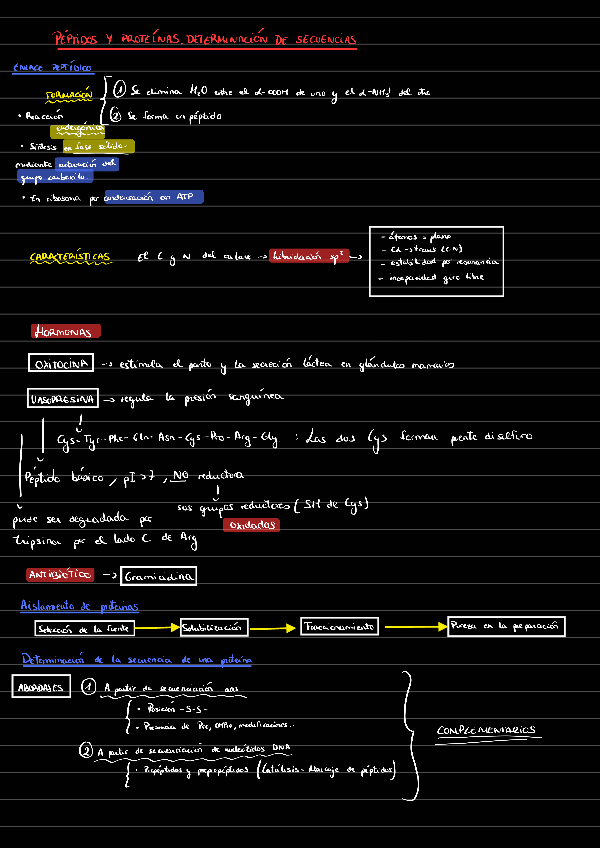 PÉPTIDOS Y PROTEÍNAS. DETERMINACIÓN DE SECUENCIAS
ENLACE PEPTÍDICO
FORMACIÓN
① Se elimina H2O entre el α-COOH de uno y el α-NH3 del otro
② Se forma un péptido
• Reacción
endergónica
• Síntesis en fase sólida
mediante activación del
grupo carboxilo.
• En ribosoma por condensación con ATP
CARACTERÍSTICAS El C y N del enlace → hibridación sp² →
- átomos = plano
- Cis-trans (C-N)
- estabilidad por resonancia
- incapacidad giro libre
HORMONAS
OXITOCINA → estimula el parto y la secreción láctea en glándulas mamarias
VASOPRESINA → regula la presión sanguínea
Cys-Tyr-Phe-Gln-Asn-Cys-Pro-Arg-Gly : Las dos Cys forman puente disulfuro
Péptido básico, pI > 7, NO reductora
sus grupos reductores (SH de Cys)
oxidados
puede ser degradada por
tripsina por el lado C de Arg
ANTIBIÓTICO → Gramicidina
Aislamiento de proteínas
Selección de la fuente
Solubilización
Fraccionamiento
Pureza en la preparación
Determinación de la secuencia de una proteína
ABORDAJES
① A partir de secuenciación
• Posición -S-S-
• Presencia de modificaciones..
② A partir de secuenciación de nucleótidos DNA
• Propéptidos y prepropéptidos (Catálisis - Marcaje de péptidos)
COMPLEMENTARIOS